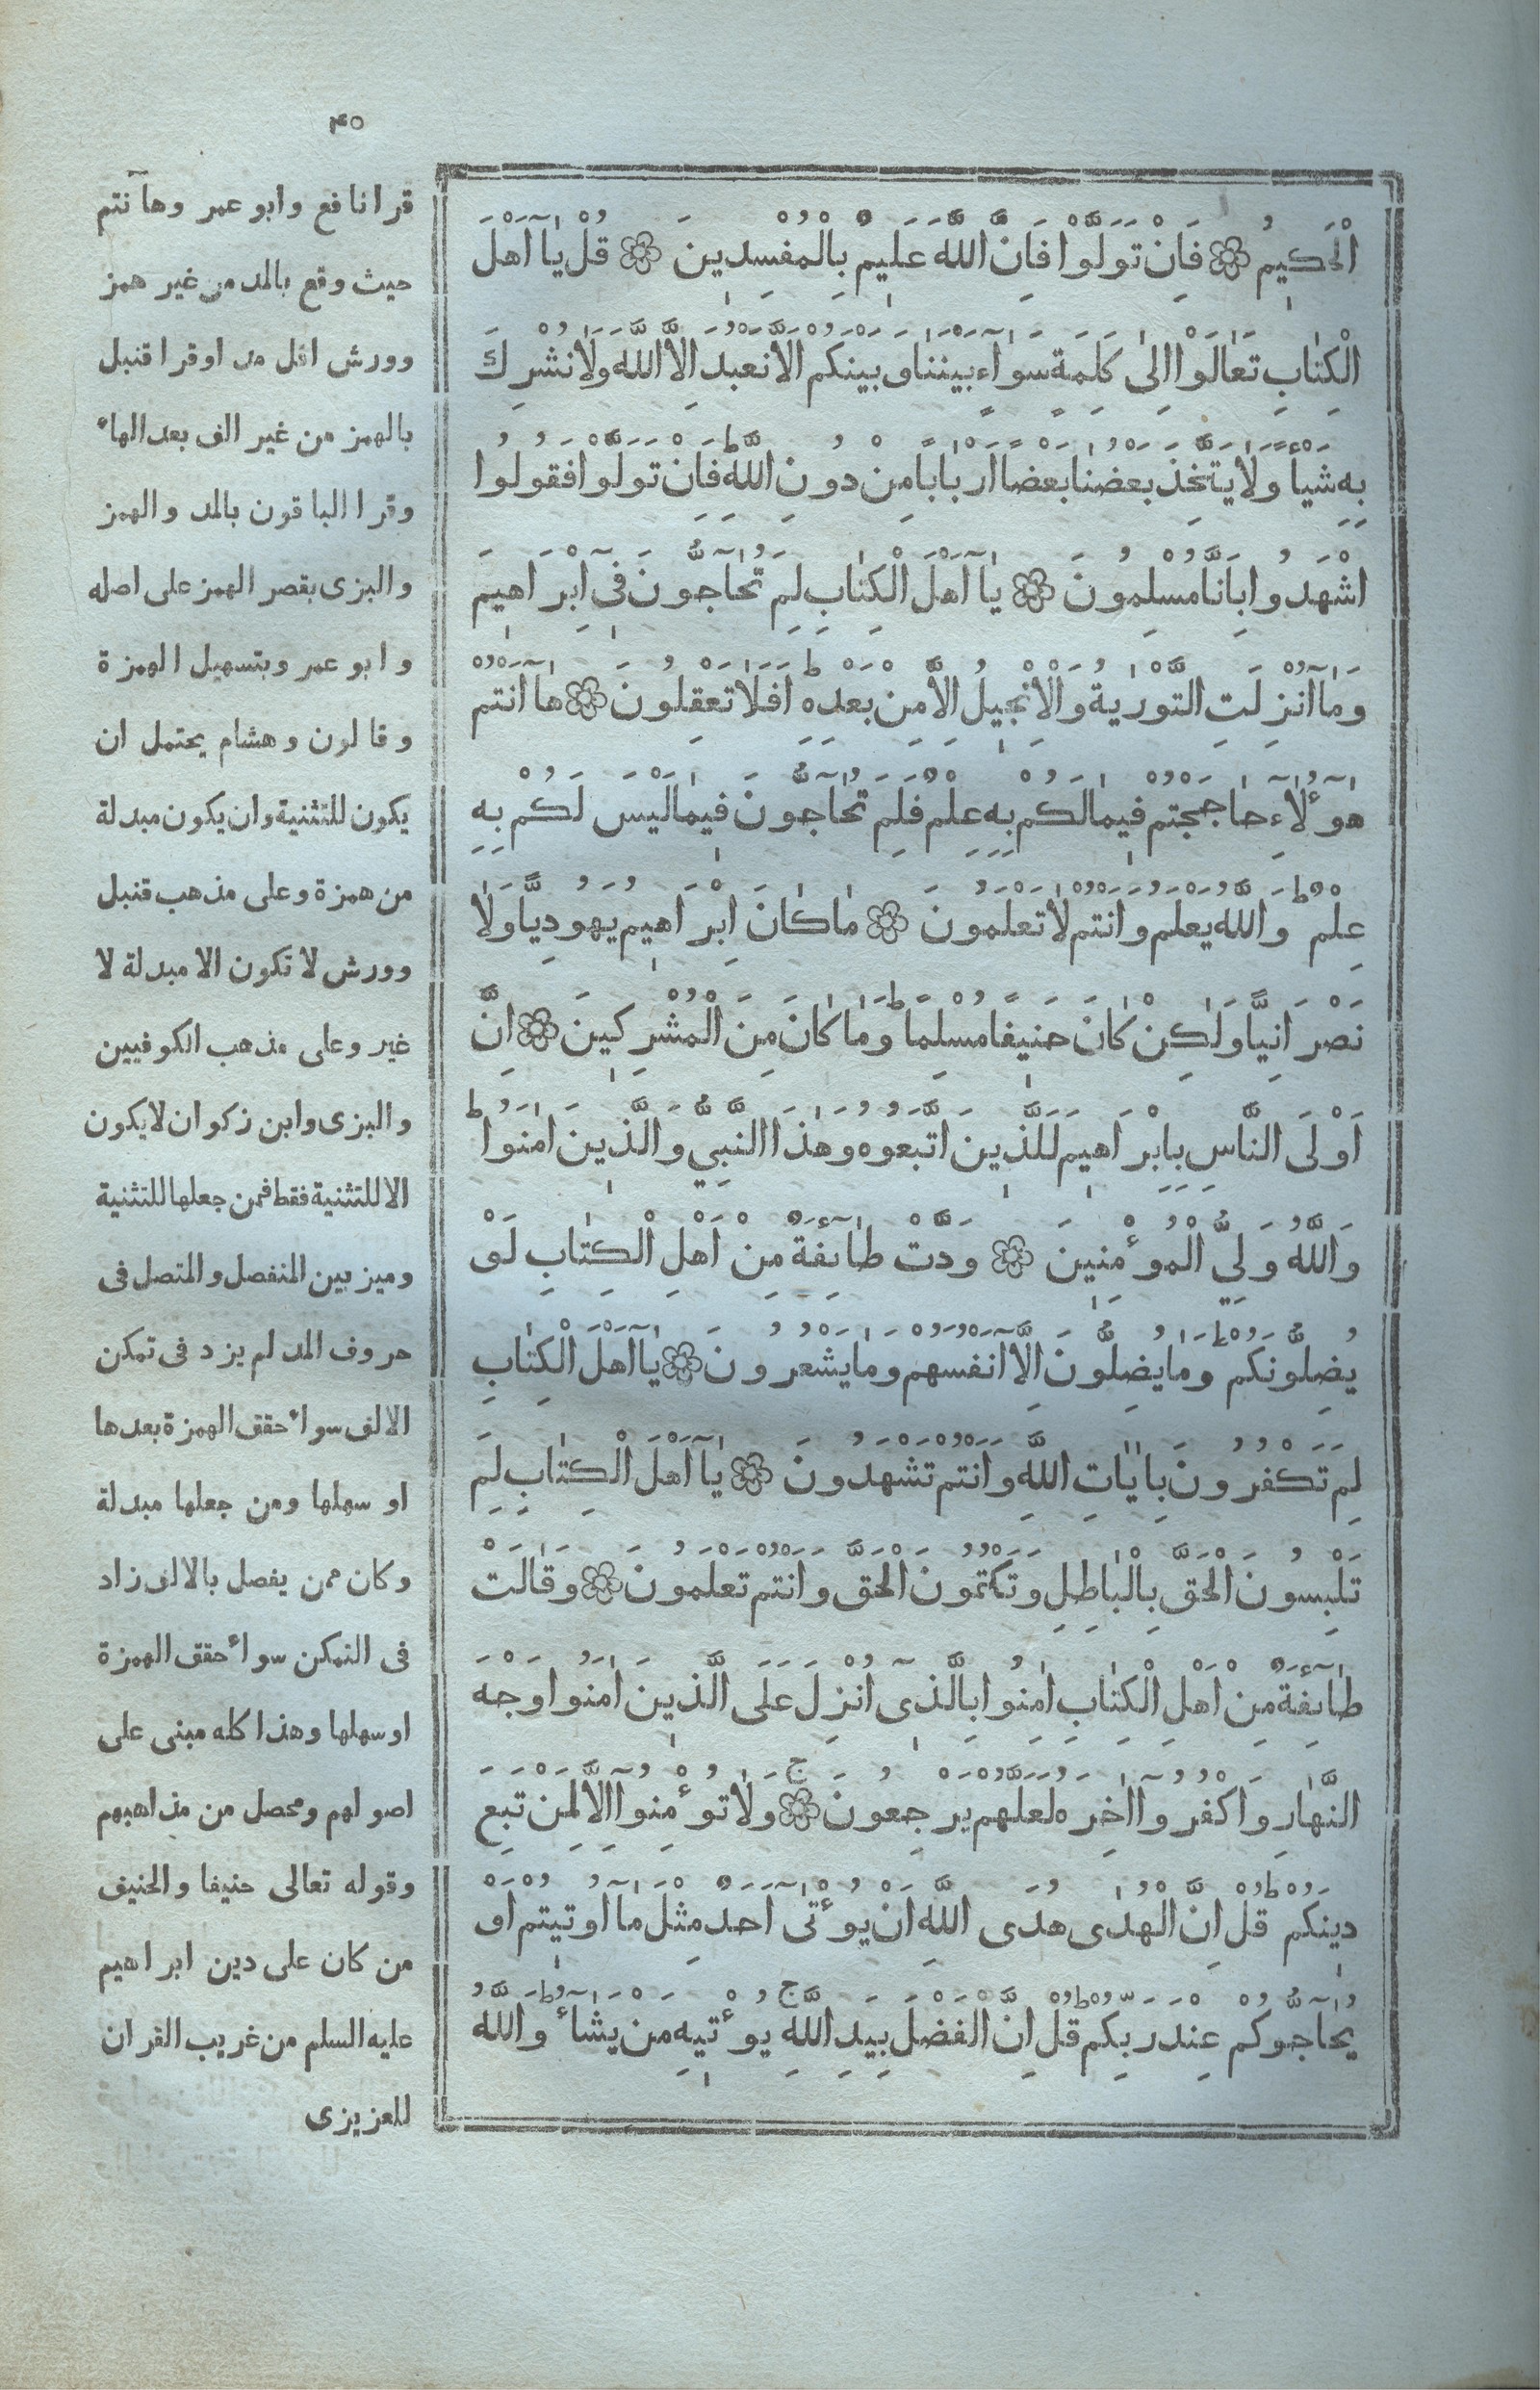 ۴۰
الْحَكِيمُ ۞ فَاِنْ تَوَلَّوْا فَاِنَّ اللَّهَ عَلِيمٌ بِالْمُفْسِدِينَ ۞ قُلْ يَآ اَهْلَ
الْكِتَابِ تَعَالَوْا اِلىٰ كَلِمَةٍ سَوَآءٍ بَيْنَنَا وَبَيْنَكُمْ اَلَّا نَعْبُدَ اِلَّا اللَّهَ وَلَا نُشْرِكَ
بِهِ شَيْأً وَلَا يَتَّخِذَ بَعْضُنَا بَعْضًا اَرْبَابًا مِنْ دُونِ اللَّهِ ط فَاِنْ تَوَلَّوْا فَقُولُوا
اشْهَدُوا بِاَنَّا مُسْلِمُونَ ۞ يَآ اَهْلَ الْكِتَابِ لِمَ تُحَآجُّونَ فِىٓ اِبْرَاهِيمَ
وَمَآ اُنْزِلَتِ التَّوْرٰيةُ وَالْاِنْجِيلُ اِلَّا مِنْ بَعْدِهِ ط اَفَلَا تَعْقِلُونَ ۞ هَآ اَنْتُمْ
هٰٓؤُلَآءِ حَاجَجْتُمْ فِيمَا لَكُمْ بِهِ عِلْمٌ فَلِمَ تُحَآجُّونَ فِيمَا لَيْسَ لَكُمْ بِهِ
عِلْمٌ ط وَاللَّهُ يَعْلَمُ وَاَنْتُمْ لَا تَعْلَمُونَ ۞ مَا كَانَ اِبْرَاهِيمُ يَهُودِيًّا وَلَا
نَصْرَانِيًّا وَلَكِنْ كَانَ حَنِيفًا مُسْلِمًا ط وَمَا كَانَ مِنَ الْمُشْرِكِينَ ۞ اِنَّ
اَوْلَى النَّاسِ بِاِبْرَاهِيمَ لَلَّذِينَ اتَّبَعُوهُ وَهٰذَا النَّبِيُّ وَالَّذِينَ اٰمَنُوا ط
وَاللَّهُ وَلِيُّ الْمُؤْمِنِينَ ۞ وَدَّتْ طَآئِفَةٌ مِنْ اَهْلِ الْكِتَابِ لَوْ
يُضِلُّونَكُمْ ط وَمَا يُضِلُّونَ اِلَّآ اَنْفُسَهُمْ وَمَا يَشْعُرُونَ ۞ يَآ اَهْلَ الْكِتَابِ
لِمَ تَكْفُرُونَ بِاٰيَاتِ اللَّهِ وَاَنْتُمْ تَشْهَدُونَ ۞ يَآ اَهْلَ الْكِتَابِ لِمَ
تَلْبِسُونَ الْحَقَّ بِالْبَاطِلِ وَتَكْتُمُونَ الْحَقَّ وَاَنْتُمْ تَعْلَمُونَ ۞ وَقَالَتْ
طَآئِفَةٌ مِنْ اَهْلِ الْكِتَابِ اٰمِنُوا بِالَّذِىٓ اُنْزِلَ عَلَى الَّذِينَ اٰمَنُوا وَجْهَ
النَّهَارِ وَاكْفُرُوٓا اٰخِرَهُ لَعَلَّهُمْ يَرْجِعُونَ ج ۞ وَلَا تُؤْمِنُوٓا اِلَّا لِمَنْ تَبِعَ
دِينَكُمْ ط قُلْ اِنَّ الْهُدٰى هُدَى اللَّهِ اَنْ يُؤْتىٰٓ اَحَدٌ مِثْلَ مَآ اُوتِيتُمْ اَوْ
يُحَآجُّوكُمْ عِنْدَ رَبِّكُمْ ط قُلْ اِنَّ الْفَضْلَ بِيَدِ اللَّهِ ج يُؤْتِيهِ مَنْ يَشَآءُ ط وَاللَّهُ
قرا نافع وابو عمر وهآ نتم
حيث وقع بالمد من غير همز
وورش اقل مد اوقرا قنبل
بالهمز من غير الف بعد الهاء
وقرا الباقون بالمد والهمز
والبزى بقصر الهمز على اصله
وابو عمر وبتسهيل الهمزة
وقالون وهشام يحتمل ان
يكون للتثنية وان يكون مبدلة
من همزة وعلى مذهب قنبل
وورش لا تكون الا مبدلة لا
غير وعلى مذهب الكوفيين
والبزى وابن ذكوان لا يكون
الا للتثنية فقط فمن جعلها للتثنية
وميز بين المنفصل والمتصل فى
حروف المد لم يزد فى تمكن
الالف سواء حقق الهمزة بعدها
او سهلها ومن جعلها مبدلة
وكان ممن يفصل بالالف زاد
فى التمكن سواء حقق الهمزة
او سهلها وهذا كله مبنى على
اصولهم ومحصل من مذاهبهم
وقوله تعالى حنيفا والحنيف
من كان على دين ابراهيم
عليه السلم من غريب القران
للعزيزى